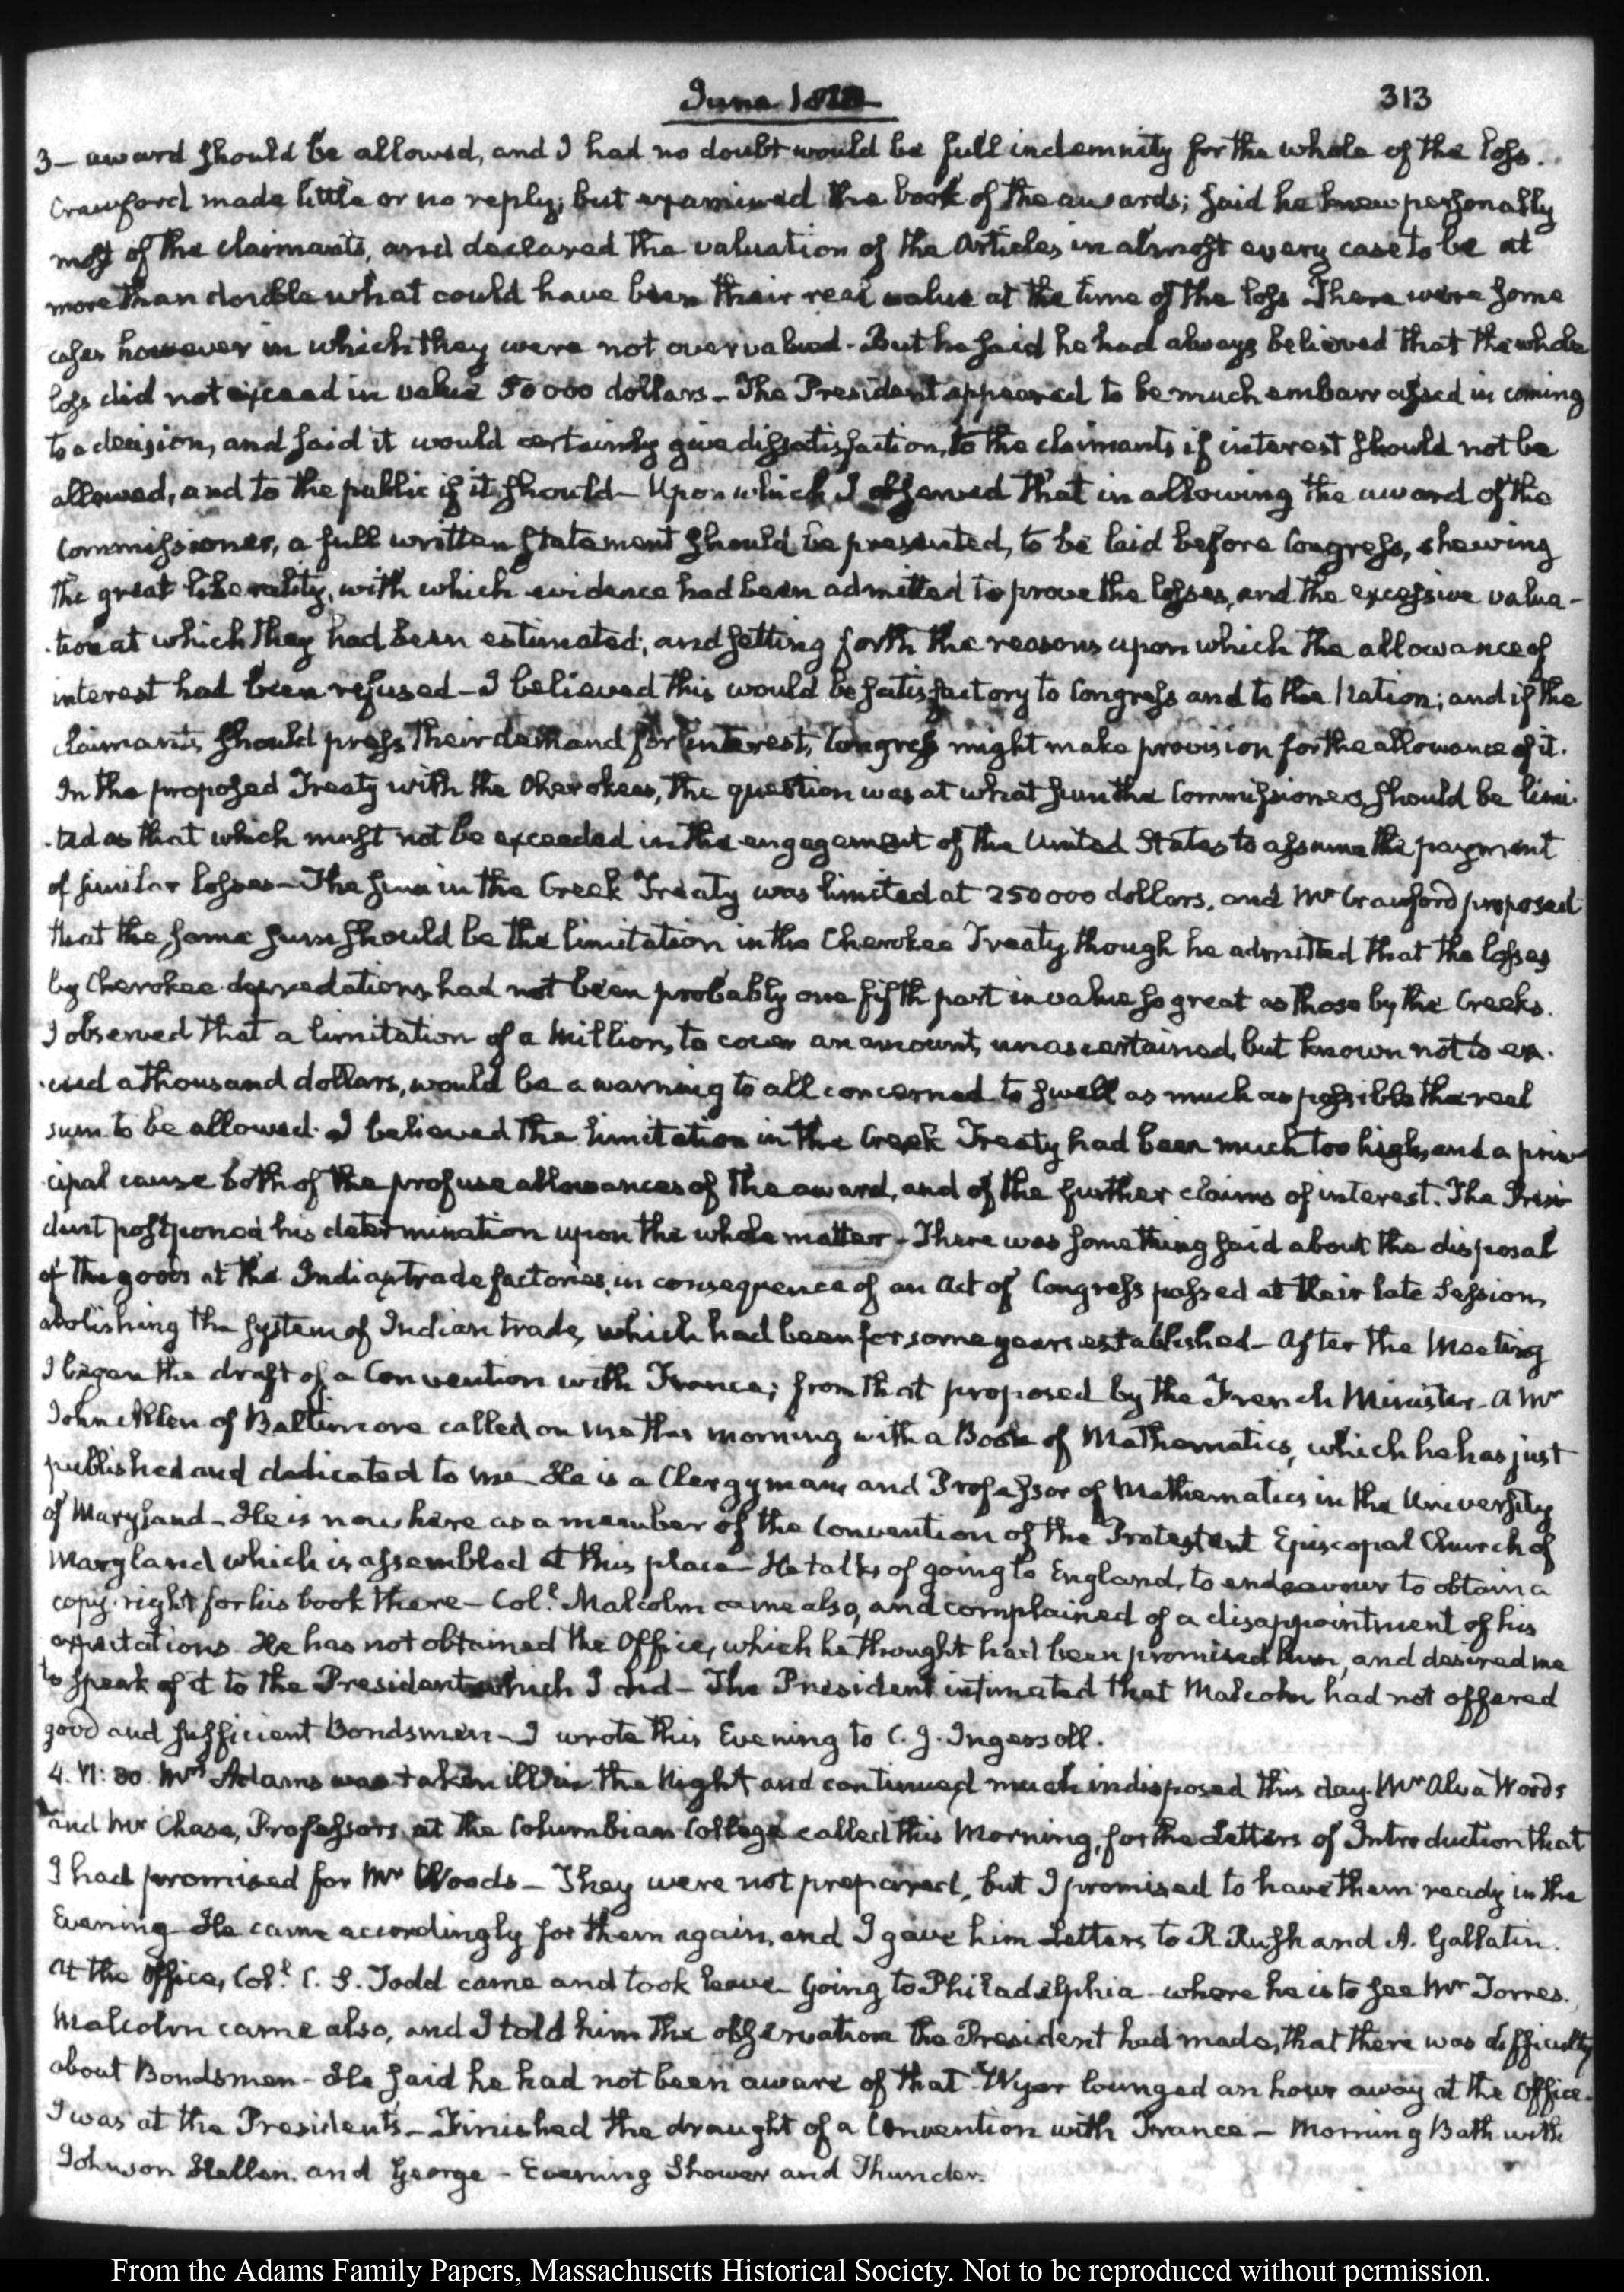 June 1822
313
3– award should be allowed, and I had no doubt would be full indemnity for the whole of the loss.
Crawford made little or no reply; but examined the book of the awards; said he knew personally
most of the claimants, and declared the valuation of the articles in almost every case to be at
more than double what could have been their real value at the time of the loss There were some
cases however in which they were not overvalued - But he said he had always believed that the whole
loss did not exceed in value 50000 dollars – The President appeared to be much embarrassed in coming
to a decision, and said it would certainly give dissatisfaction, to the claimants if interest should not be
allowed, and to the public if it should – Upon which I observed that in allowing the award of the
Commissioner, a full written statement should be presented, to be laid before Congress, shewing
the great liberality, with which evidence had been admitted to prove the losses, and the excessive valua-
-tion at which they had been estimated; and setting forth the reasons upon which the allowance of
interest had been refused – I believed this would be satisfactory to Congress and to the Nation; and if the
claimants should press their demand for interest, Congress might make provision for the allowance of it.
In the proposed Treaty with the Cherokees, the question was at what sum the Commissioners should be limi-
-ted as that which must not be exceeded in the engagement of the United States to assume the payment
of similar losses – The sum in the Creek Treaty was limited at 250000 dollars, and Mr Crawford proposed
that the same sum should be the limitation in the Cherokee Treaty though he admitted that the losses
by Cherokee depredations had not been probably one fifth part in value so great as those by the Creeks.
I observed that a limitation of a Million, to cover an amount, unascertained, but known not to ex-
-ceed a thousand dollars, would be a warning to all concerned to swell as much as possible the real
sum to be allowed. I believed the limitation in the Creek Treaty had been much too high, and a prin-
-cipal cause both of the profuse allowances of the award, and of the further claims of interest. The Presi-
dent postponed his determination upon the whole matter – There was something said about the disposal
of the goods at the Indian trade factories, in consequence of an Act of Congress passed at their late Session,
abolishing the system of Indian trade, which had been for some years established – After the Meeting
I began the draft of a Convention with France; from that proposed by the French Minister – A Mr
John Allen of Baltimore called on me this morning with a Book of Mathematics, which he has just
published and dedicated to me – He is a Clergyman, and Professor of Mathematics in the University
of Maryland – He is now here as a member of the Convention of the Protestant Episcopal Church of
Maryland which is assembled at this place – He talks of going to England, to endeavour to obtain a
copy-right for his book there – Col.l Malcolm came also, and complained of a disappointment of his
expectations. He has not obtained the Office, which he thought had been promised him, and desired me
to speak of it to the President which I did – The President intimated that Malcolm had not offered
good and sufficient Bondsmen – I wrote this Evening to C. J. Ingersoll.
4. VI: 30. Mrs Adams was taken ill in the Night and continued much indisposed this day. Mr Alva Woods
and Mr Chase, Professors at the Columbian College called this Morning, for the Letters of Introduction that
I had promised for Mr Woods – They were not prepared, but I promised to have them ready in the
Evening – He came accordingly for them again, and I gave him Letters to R. Rush and A. Gallatin.
At the Office, Col.l C. S. Todd came and took leave – Going to Philadelphia – where he is to see Mr Torres.
Malcolm came also, and I told him the observation the President had made, that there was difficulty
about Bondsmen – He said he had not been aware of that – Wyer lounged an hour away at the Office.
I was at the President's – Finished the draught of a Convention with France – Morning Bath with
Johnson Hellen, and George – Evening Shower and Thunder.
From the Adams Family Papers, Massachusetts Historical Society. Not to be reproduced without permission.